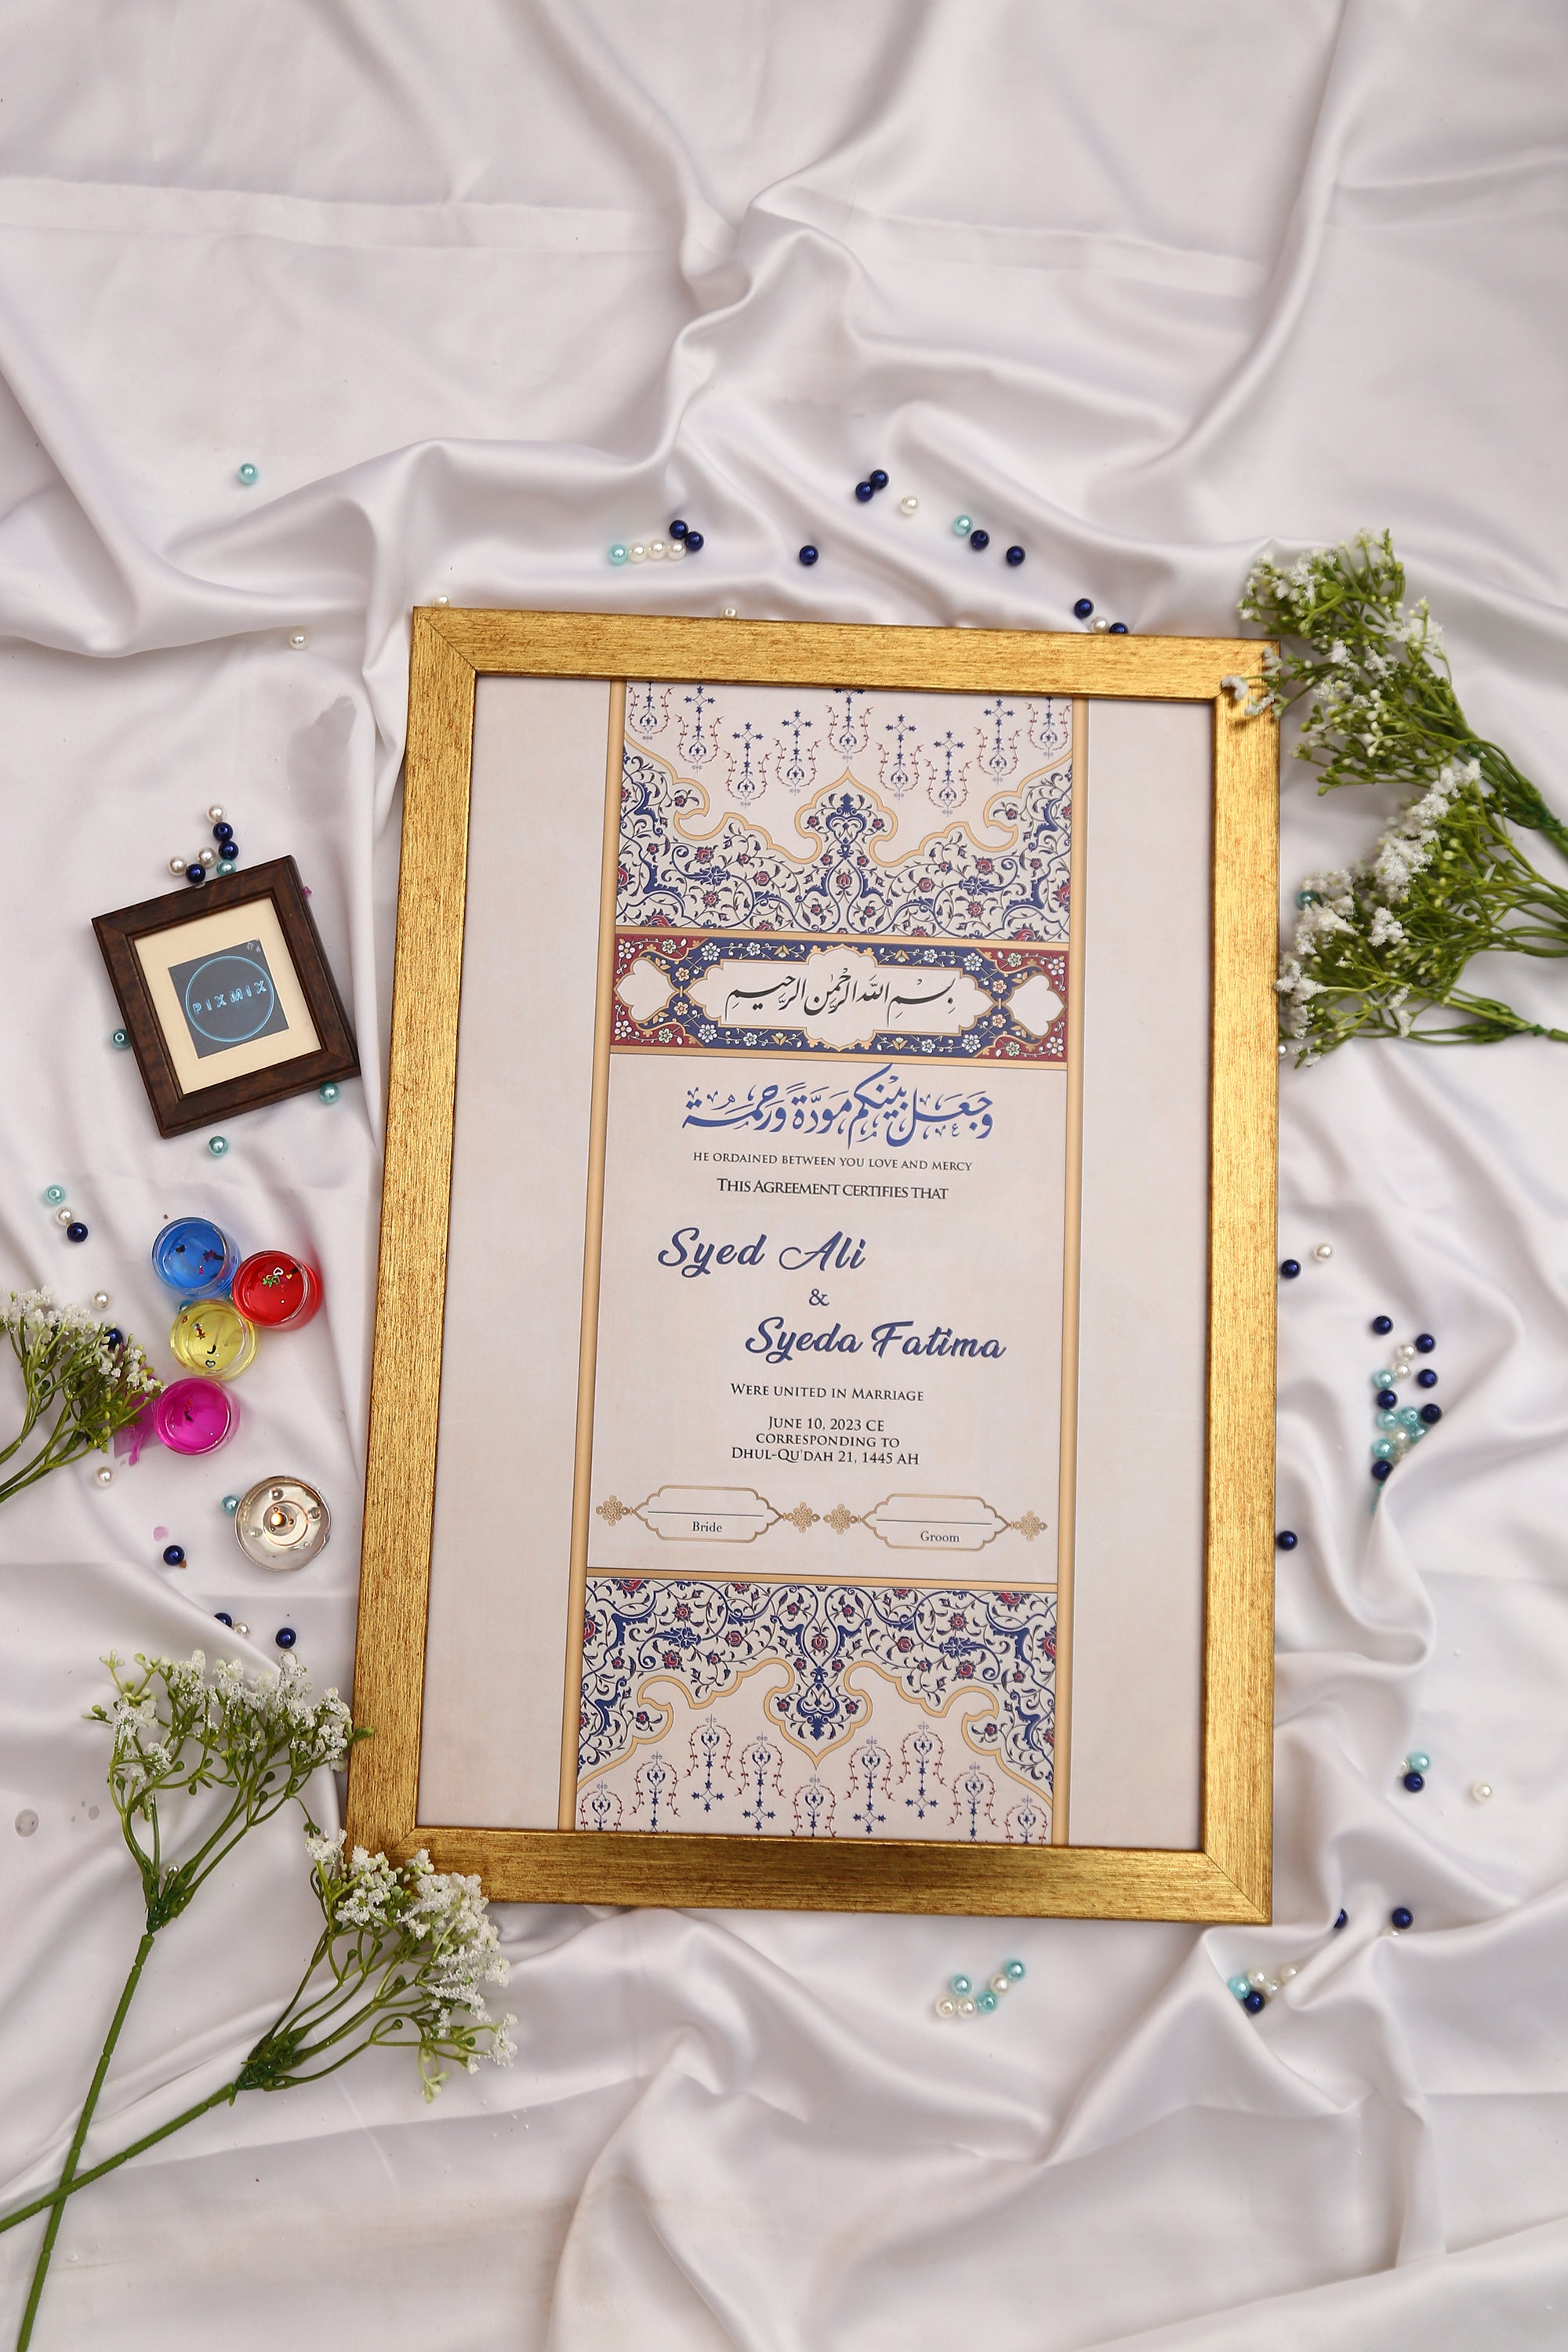 بسم الله الرحمن الرحيم
وجعل بينكم مودة ورحمة
HE ORDAINED BETWEEN YOU LOVE AND MERCY
THIS AGREEMENT CERTIFIES THAT
Syed Ali
&
Syeda Fatima
WERE UNITED IN MARRIAGE
JUNE 10, 2023 CE
CORRESPONDING TO
DHUL-QU'DAH 21, 1445 AH
Bride
Groom
PIXMIX